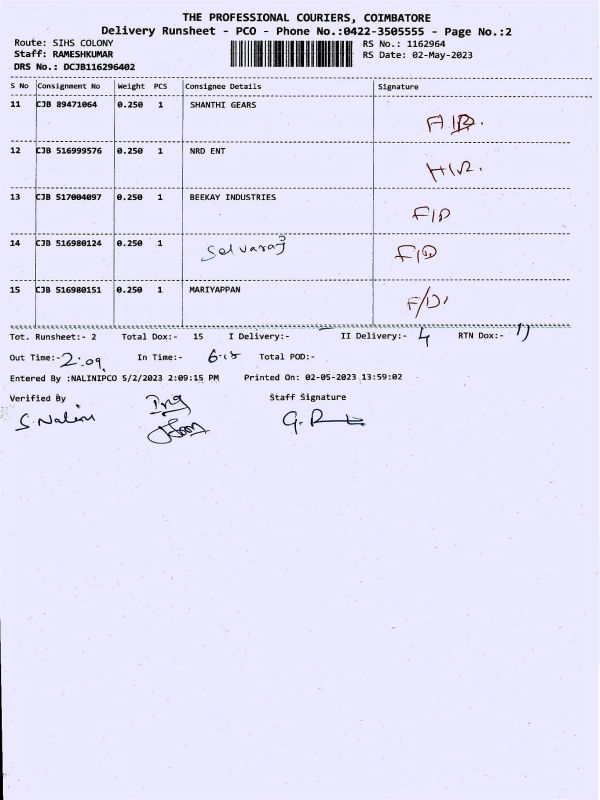 THE PROFESSIONAL COURIERS, COIMBATORE
Delivery Runsheet - PCO - Phone No.:0422-3505555 - Page No.:2
Route: SIHS COLONY RS No.: 1162964
Staff: RAMESHKUMAR RS Date: 02-May-2023
DRS No.: DCJB116296402
S No Consignment No Weight PCS Consignee Details Signature
11 CJB 89471064 0.250 1 SHANTHI GEARS
12 CJB 516999576 0.250 1 NRD ENT
13 CJB 517004097 0.250 1 BEEKAY INDUSTRIES F/D
14 CJB 516980124 0.250 1 Selvaraj F/D
15 CJB 516980151 0.250 1 MARIYAPPAN F/D
Tot. Runsheet:- 2 Total Dox:- 15 I Delivery:- – II Delivery:- 4 RTN Dox:- 11
Out Time:- 2:09 In Time:- 6-15 Total POD:-
Entered By :NALINIPCO 5/2/2023 2:09:15 PM Printed On: 02-05-2023 13:59:02
Verified By Staff Signature
S. Nalini